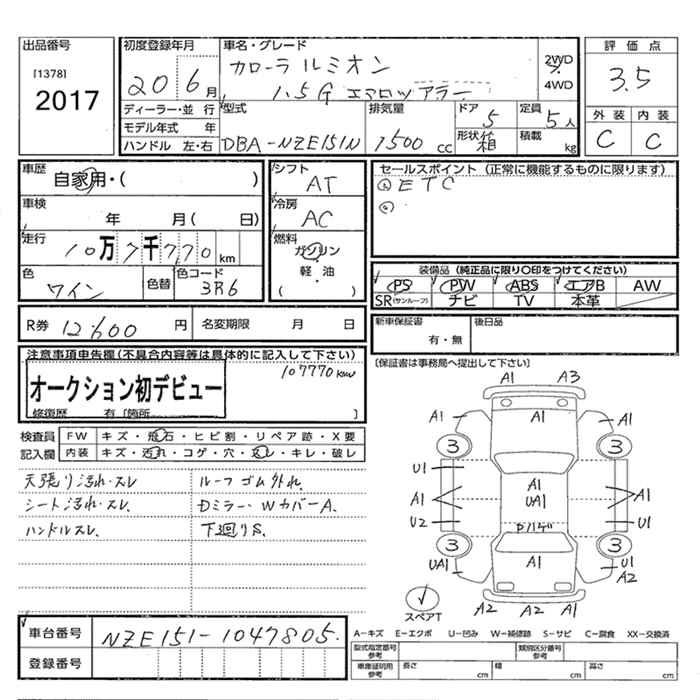 出品番号
[1378]
2017
初度登録年月
20 6月
車名・グレード
カローラ ルミオン
1.5G エアロツアラー
2WD
4WD
評価点
3.5
外装 内装
C C
ディーラー・並行
モデル年式 年
ハンドル 左・右
型式
DBA-NZE151N
排気量
1500 cc
ドア
5
形状 箱
定員
5人
積載 kg
車歴
自家用・( )
車検
年 月( 日)
走行
10万7千770 km
色
ワイン
色替
色コード
3R6
シフト
AT
冷房
AC
燃料
ガソリン
・
軽・油
( )
セールスポイント(正常に機能するものに限ります)
① ETC
②
装備品(純正品に限り〇印をつけてください)
PS PW ABS エアB AW
SR(サンルーフ) ナビ TV 本革
R券 12,600 円
名変期限 月 日
新車保証書
有・無
後日品
[保証書は事務局へ提出して下さい]
注意事項車申告欄(不具合内容等は具体的に記入して下さい)
107770km
オークション初デビュー
修復歴 有[箇所 ]
検査員
記入欄
FW キズ・飛石・ヒビ割・リペア跡・X要
内装 キズ・汚れ・コゲ・穴・スレ・キレ・破レ
天張り汚れ・スレ
シート汚れ・スレ.
ハンドルスレ.
ルーフゴム外れ.
Dミラー・WカバーA.
下廻りS.
A1 A3
A1 A1 A1
3 3
U1 A1
A1 UA1 A1
U2 U1
Pハゲ
3 3
UA1 A1 U1
A2
A2 A2
スペアT
A-キズ E-エクボ U-凹み W-補修跡 S-サビ C-腐食 XX-交換済
車台番号
NZE151-1047805.
登録番号
型式指定番号
参考
類別区分番号
参考
車庫証明用
参考
長さ cm
幅 cm
高さ cm